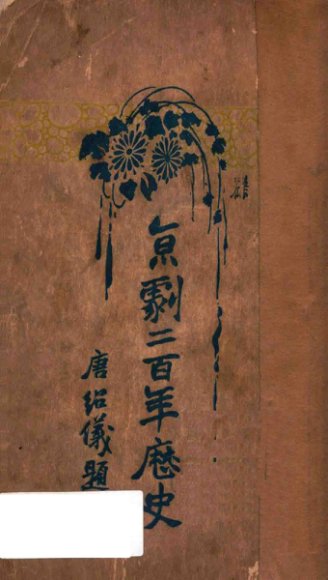 京劇二百年歷史
唐紹儀題